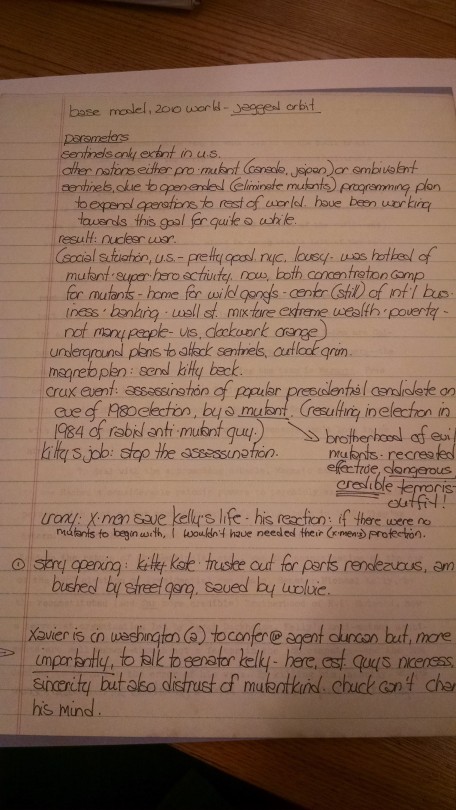 base model, 2010 world - jagged orbit
parameters
sentinels only extant in u.s.
other nations either pro·mutant (canada, japan) or ambivalent
sentinels, due to open·ended (eliminate mutants) programming plan
to expand operations to rest of world. have been working
towards this goal for quite a while.
result: nuclear war.
(social situation, u.s. - pretty good. nyc, lousy - was hotbed of
mutant·super·hero activity. now, both concentration camp
for mutants - home for wild gangs - center (still) of int'l bus·
iness · banking - wall st. mixture extreme wealth · poverty -
not many people - vis, clockwork orange)
underground plans to attack sentinels, outlook grim.
magneto plan: send kitty back.
crux event: assassination of popular presidential candidate on
eve of 1980 election, by a mutant. (resulting in election in
1984 of rabid anti·mutant guy.)
brotherhood of evil
mutants - recreated
effective, dangerous
credible terroris
outfit!
kitty's job: stop the assassination.
irony: x·men save kelly's life - his reaction: if there were no
mutants to begin with, I wouldn't have needed their (x·men's) protection.
① story opening: kitty·kate · trustee out for parts rendezvous, am
bushed by street gang, saved by wolvie.
xavier is in washington (a) to confer @ agent duncan but, more
importantly, to talk to senator kelly - here, est. guy's niceness,
sincerity but also distrust of mutantkind. chuck can't chan
his mind.